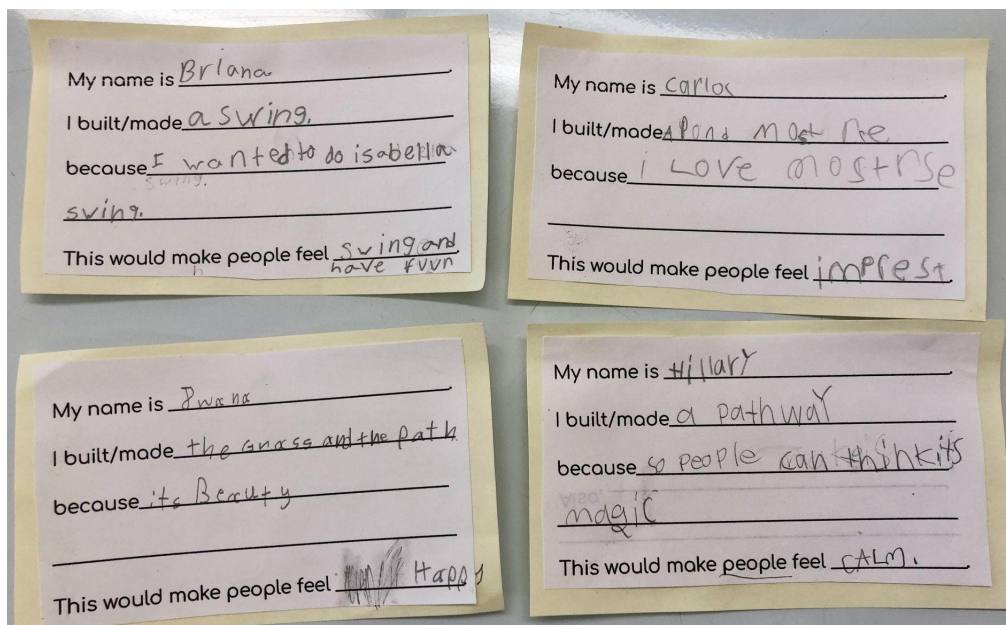 My name is Briana
I built/made a swing.
because I wanted to do isabella
swing.
swing.
This would make people feel swing and
have fuvn
My name is Carlos
I built/made A Pond most re
because i Love mostrse
This would make people feel imprest.
My name is
I built/made the Grass and the path
because its Beauty
This would make people feel Happy
My name is Hillary
I built/made a pathway
because so people can think its
Also,
magic
This would make people feel CALM.